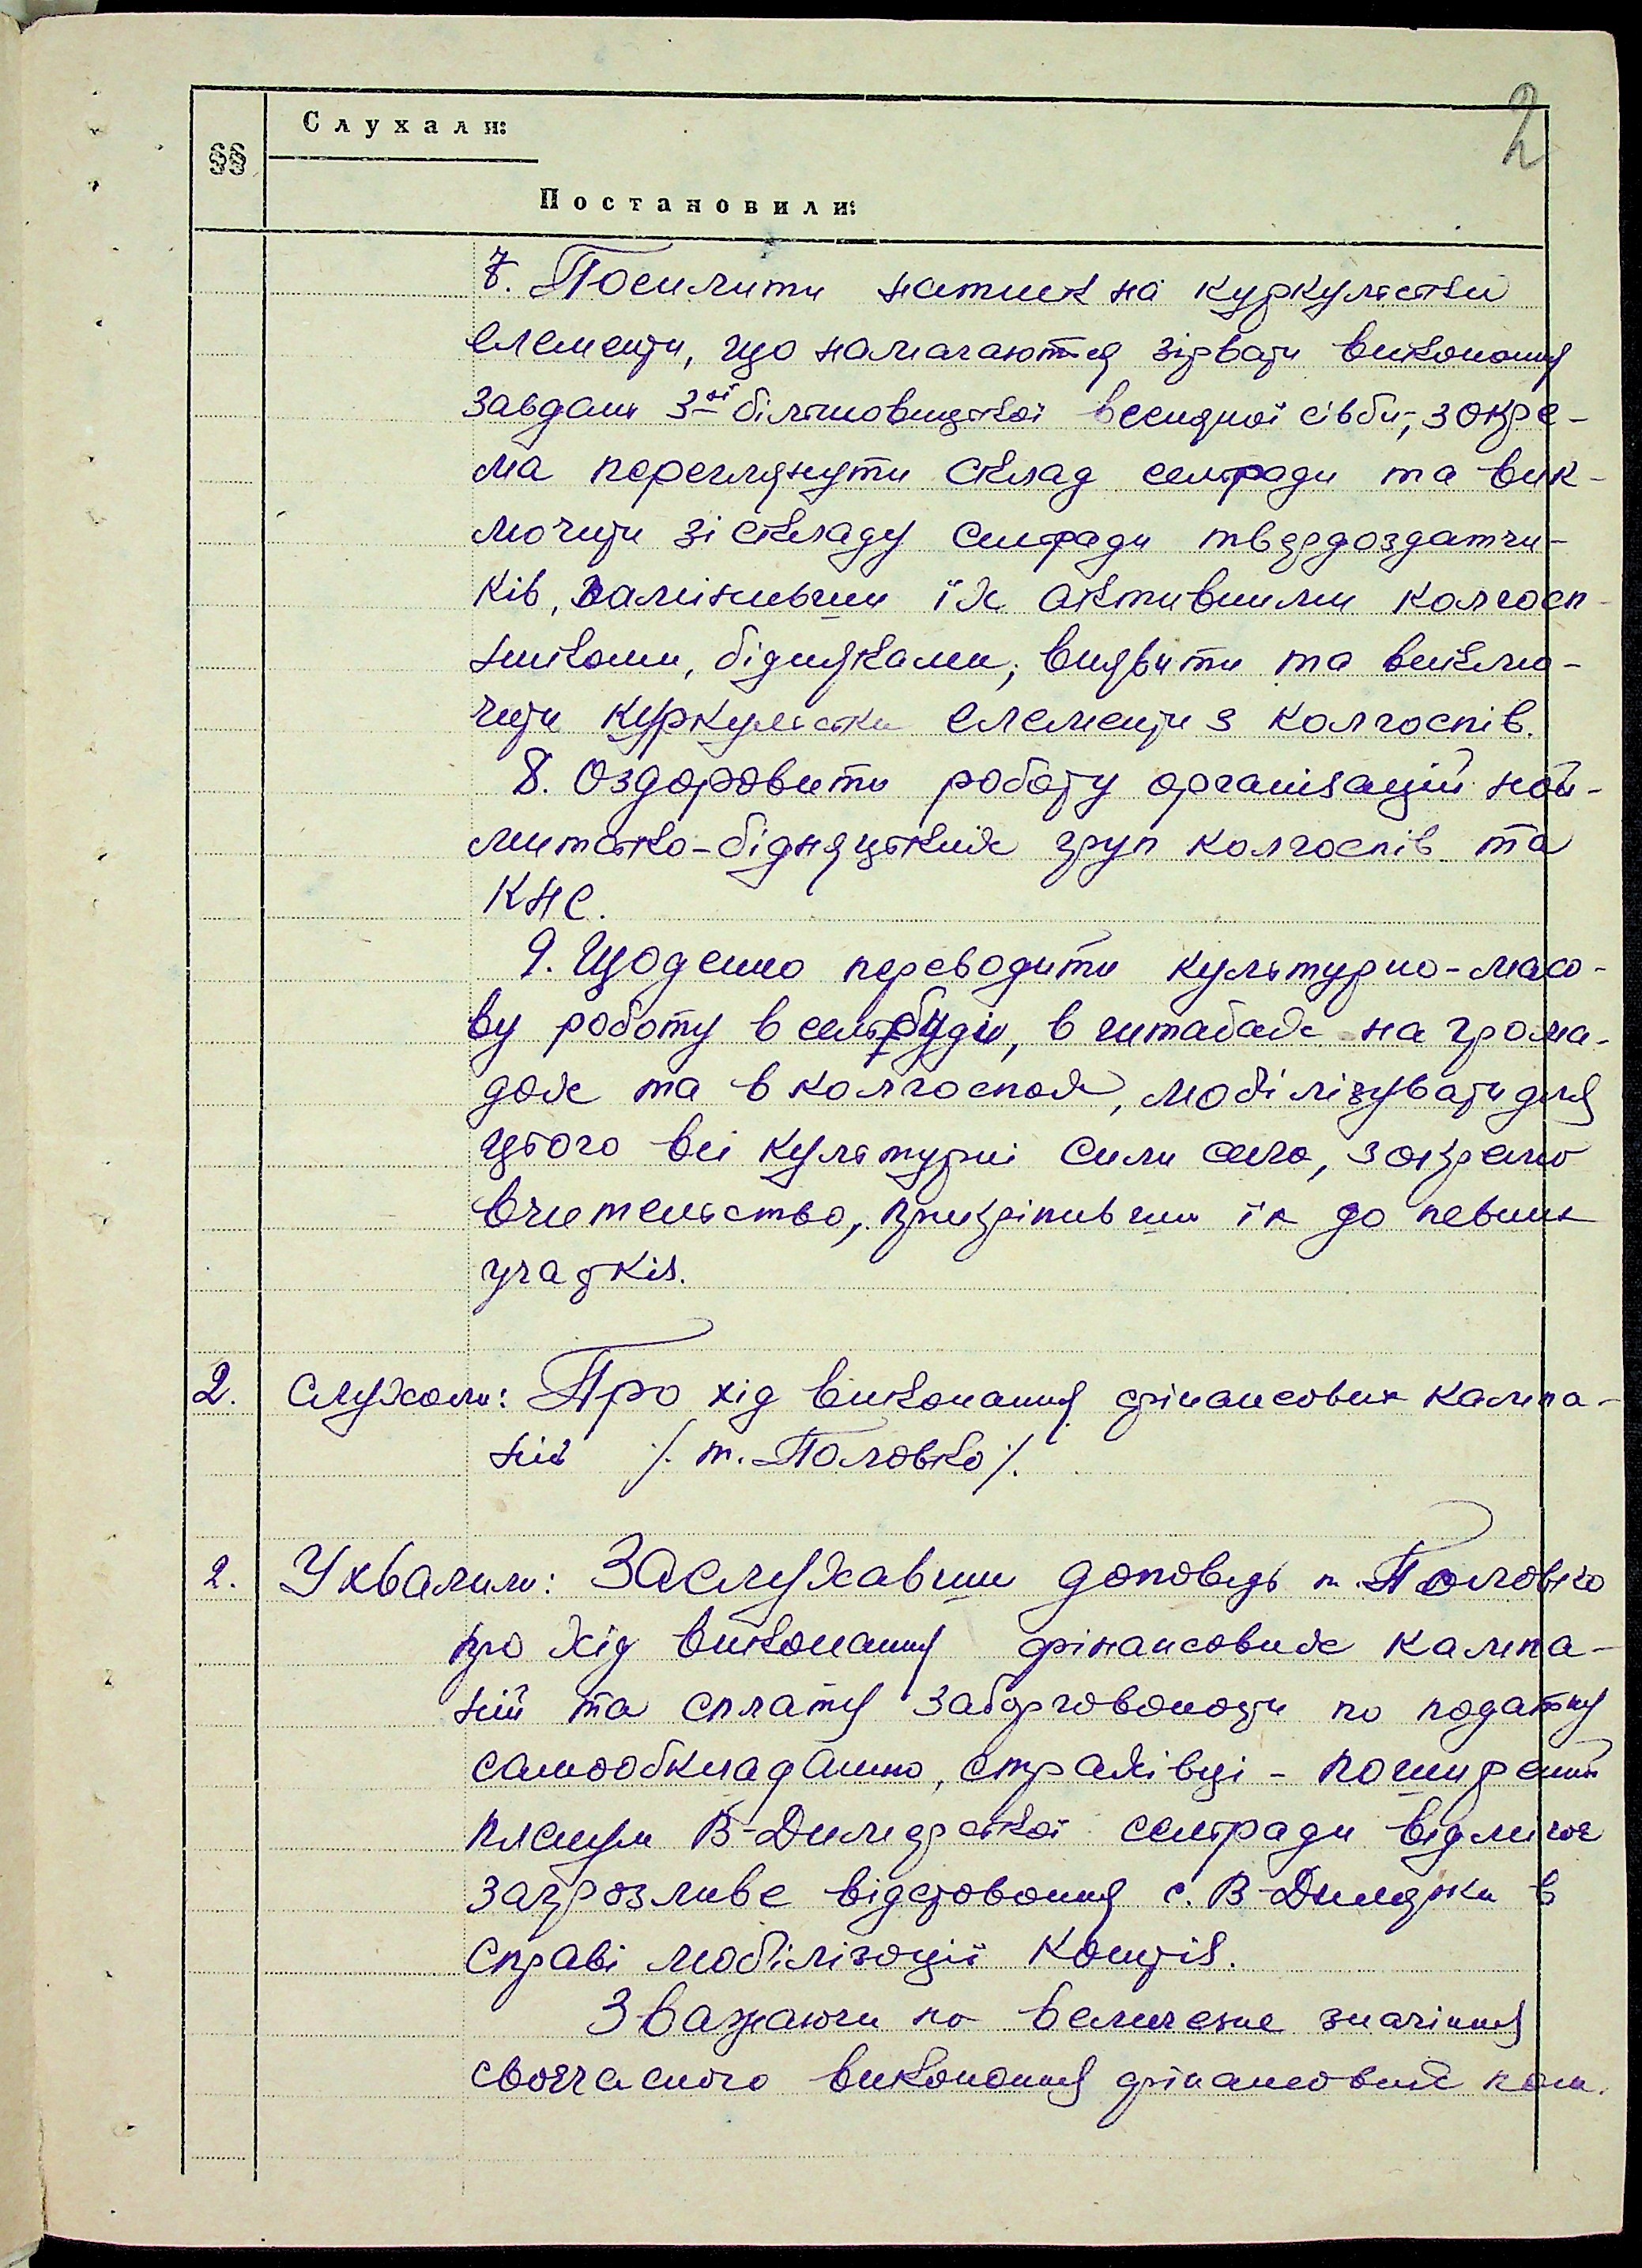 2
§§
Слухали:
Постановили:
7. Посилити натиск на куркульські
елементи, що намагаються зірвати виконання
завдань 3-ої більшовицької весняної сівби, зокре-
ма переглянути склад сельради та вик-
лючити зі складу сельради твердоздатчи-
ків, замінивши їх активними колгосп-
никами, бідняками; виявити та виклю-
чити куркульски елементи з колгоспів.
8. Оздоровити роботу організацій най-
митсько-бідняцьких груп колгоспів та
КНС.
9. Щоденно переводити культурно-масо-
ву роботу в сельбуді, в читабах на грома-
дах та в колгоспах, мобілізувати для
цього всі культурні сили села, зокрема
вчительство, прикріпивши їх до певних
участків.
2. Слухали: Про хід виконання фінансових кампа-
ній /. т. Половко /.
2. Ухвалили: Заслухавши доповідь т. Половко
про хід виконання фінансових кампа-
ній та сплату заборгованости по податку
самообкладанню, страхівці - поширений
пленум В-Димерської сельради відмічає
загрозливе відставання с. В-Димерки в
справі мобілізації коштів.
Зважаючи на величезне значіння
своєчасного виконання фінансових кам.